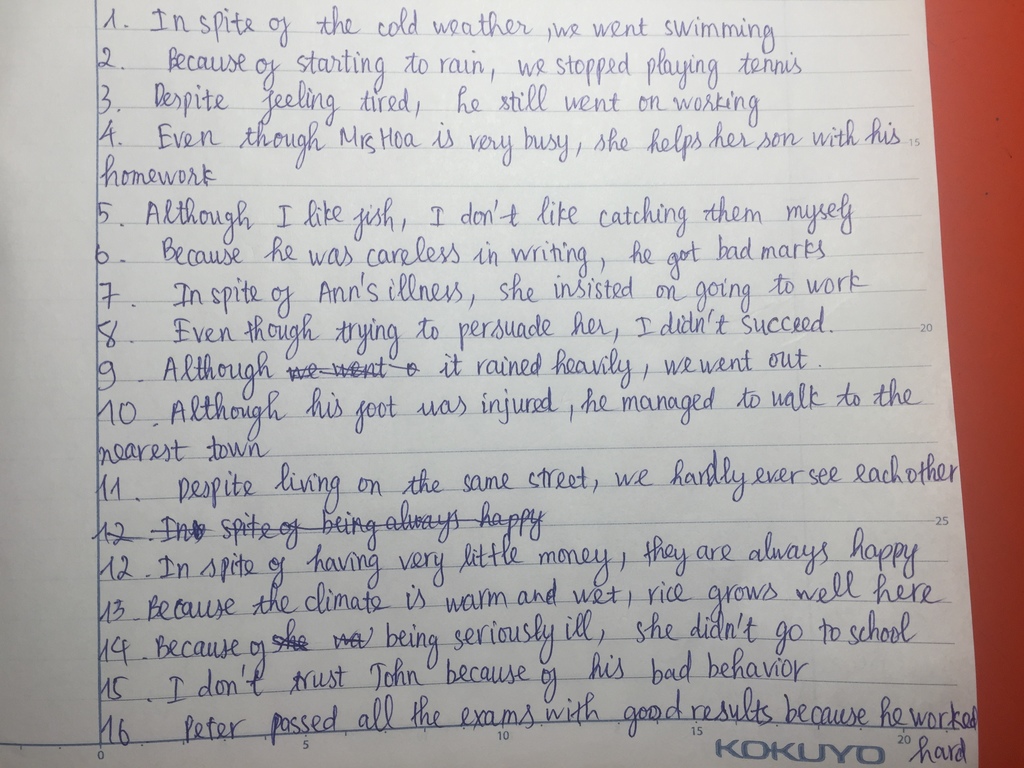 1. In spite of the cold weather, we went swimming
2. Because of starting to rain, we stopped playing tennis
3. Despite feeling tired, he still went on working
4. Even though Mrs Hoa is very busy, she helps her son with his
15
homework
5. Although I like fish, I don't like catching them myself
6. Because he was careless in writing, he got bad marks
7. In spite of Ann's illness, she insisted on going to work
8. Even though trying to persuade her, I didn't succeed.
20
9. Although we went o it rained heavily, we went out.
10. Although his foot was injured, he managed to walk to the
nearest town
11. Despite living on the same street, we hardly ever see each other
12 In spite of being always happy
25
12. In spite of having very little money, they are always happy
13. Because the climate is warm and wet, rice grows well here
14. Because of she being seriously ill, she didn't go to school
15. I don't trust John because of his bad behavior
16 Peter passed all the exams with good results because he worked
hard
0 5 10 15 20
KOKUYO